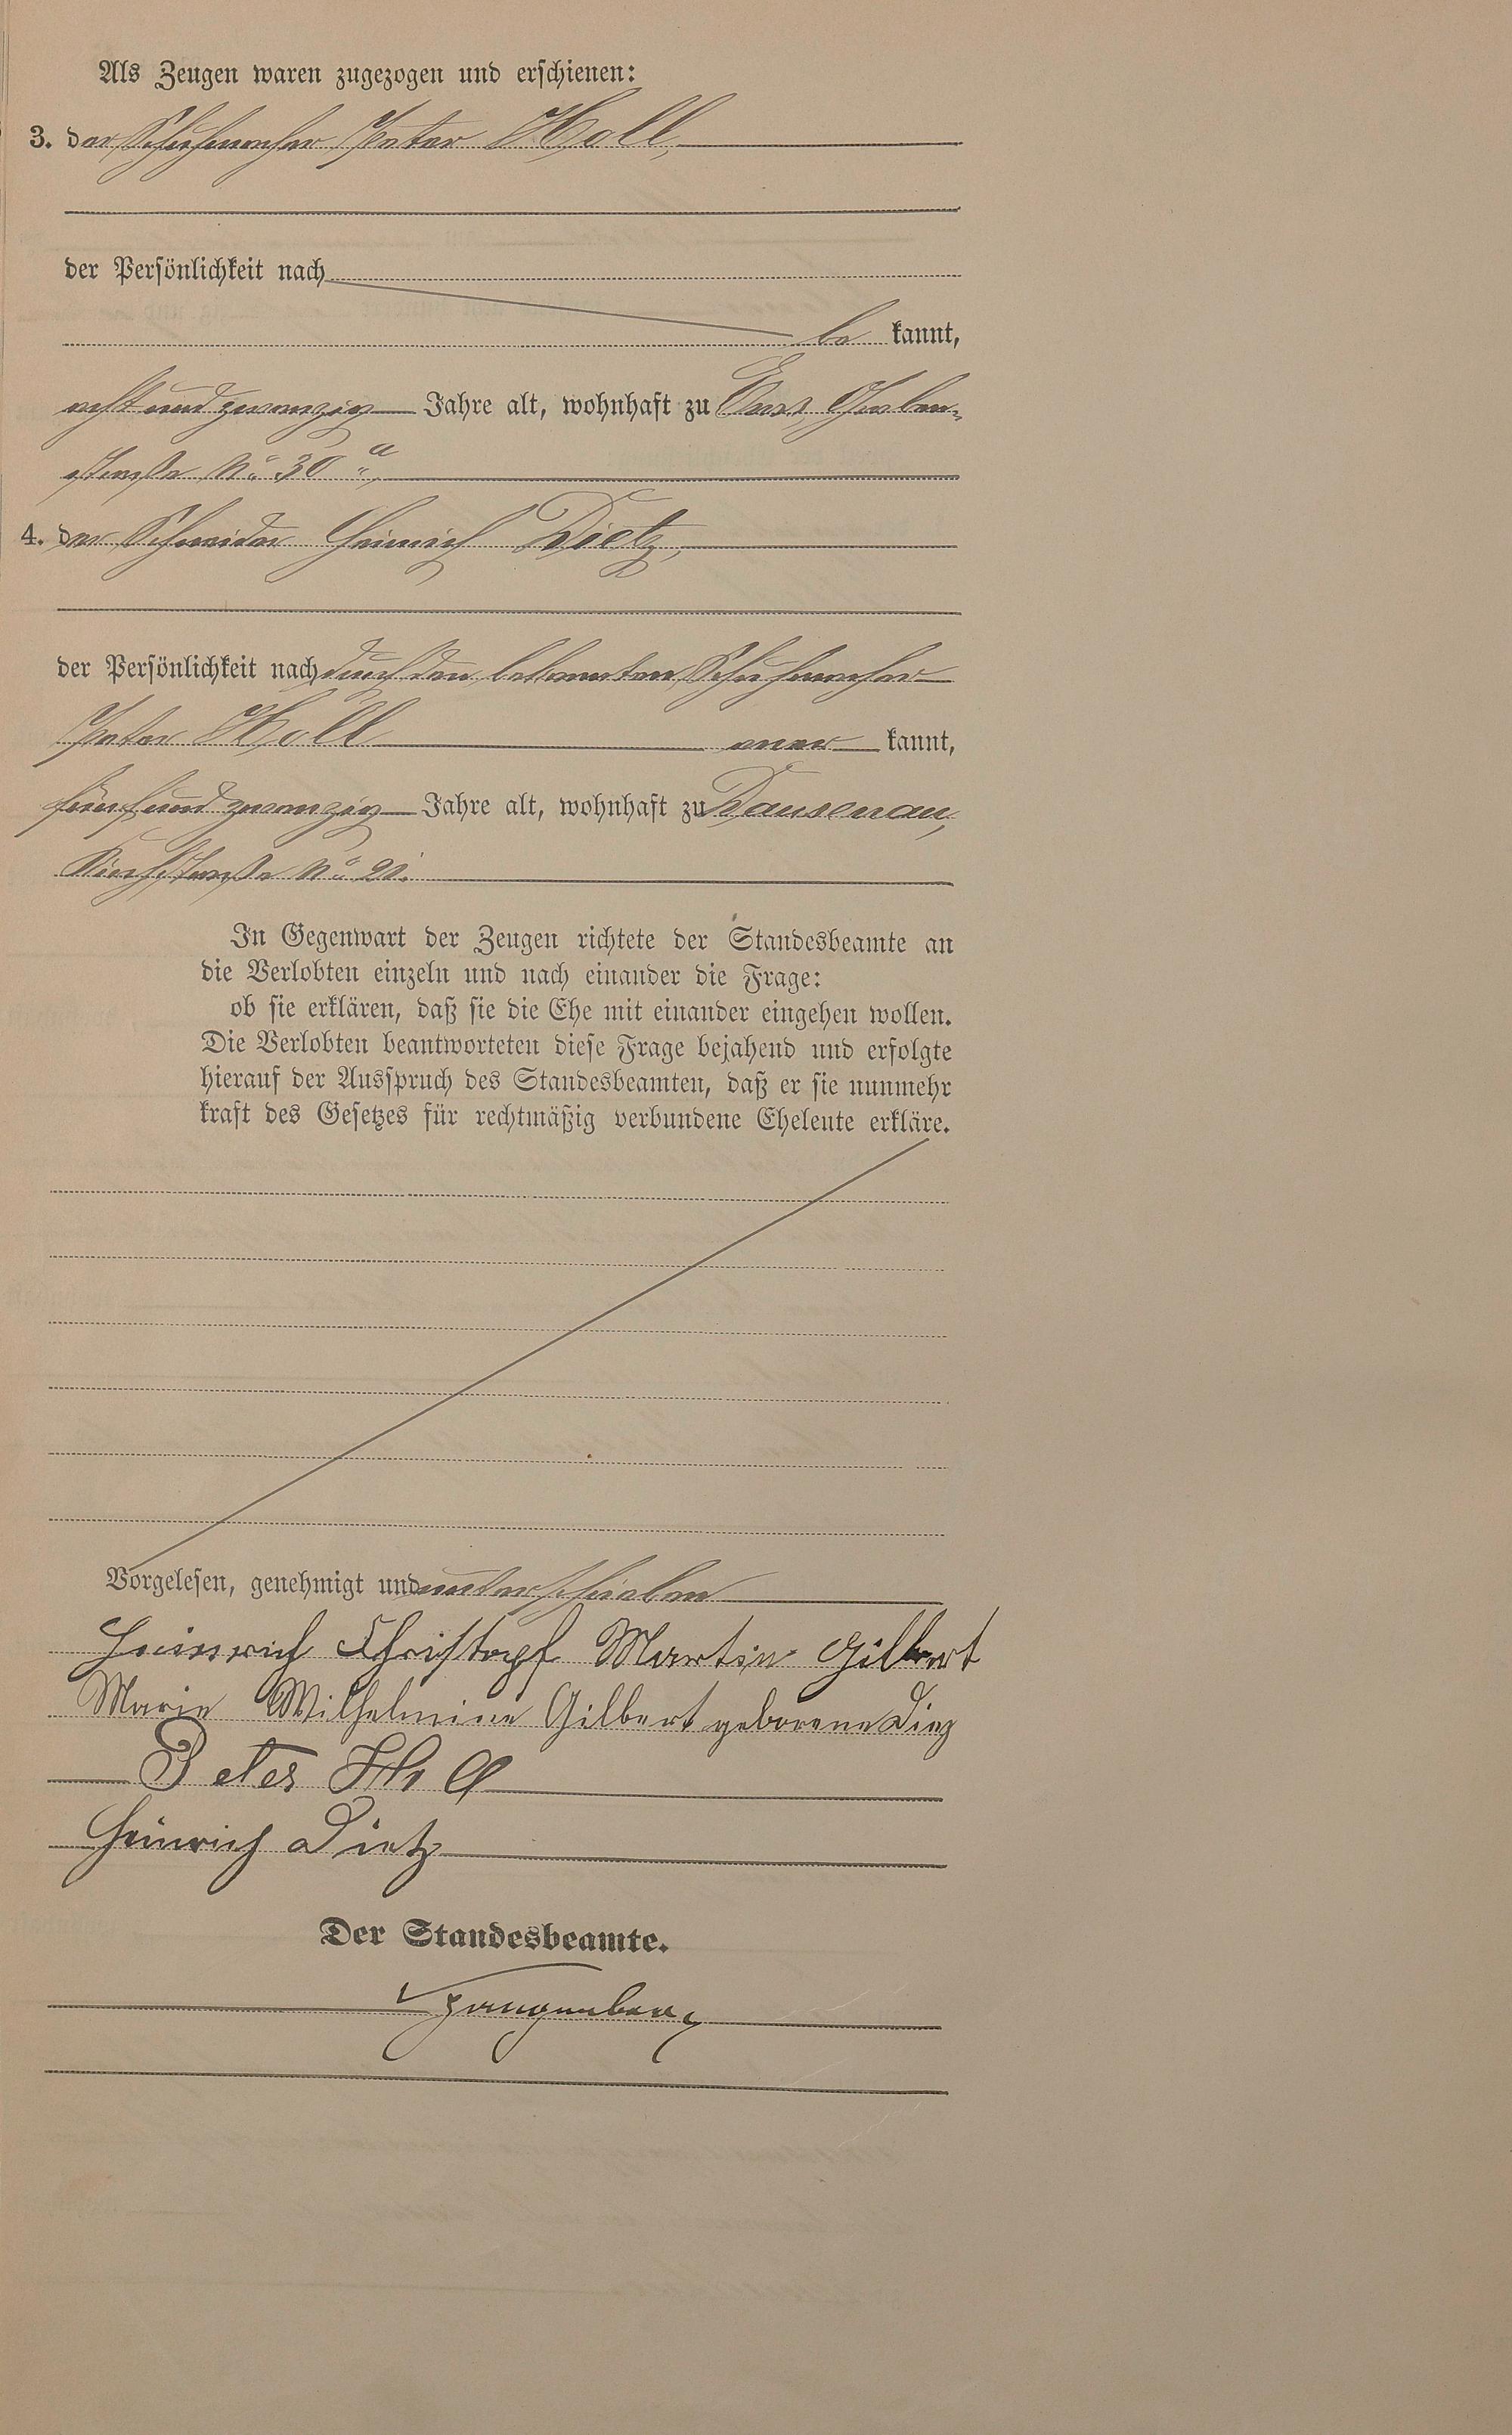 Als Zeugen waren zugezogen und erschienen:
3. der Schuhmacher Peter Holl,
der Persönlichkeit nach
be kannt,
acht und zwanzig Jahre alt, wohnhaft zu Ems, Graben-
straße No 30 a,
4. der Schneider Heinrich Dietz,
der Persönlichkeit nach durch den bekannten Schuhmacher
Peter Holl aner kannt,
fünf und zwanzig Jahre alt, wohnhaft zu Dausenau,
Kirchstraße No
In Gegenwart der Zeugen richtete der Standesbeamte an
die Verlobten einzeln und nach einander die Frage:
ob sie erklären, daß sie die Ehe mit einander eingehen wollen.
Die Verlobten beantworteten diese Frage bejahend und erfolgte
hierauf der Ausspruch des Standesbeamten, daß er sie nunmehr
kraft des Gesetzes für rechtmäßig verbundene Eheleute erkläre.
Vorgelesen, genehmigt und unterschrieben
Heinrich Christoph Martin Gilbert
Marie Wilhelmine Gilbert geborene Dietz
Peter Holl
Heinrich Dietz
Der Standesbeamte.
Spangenberg